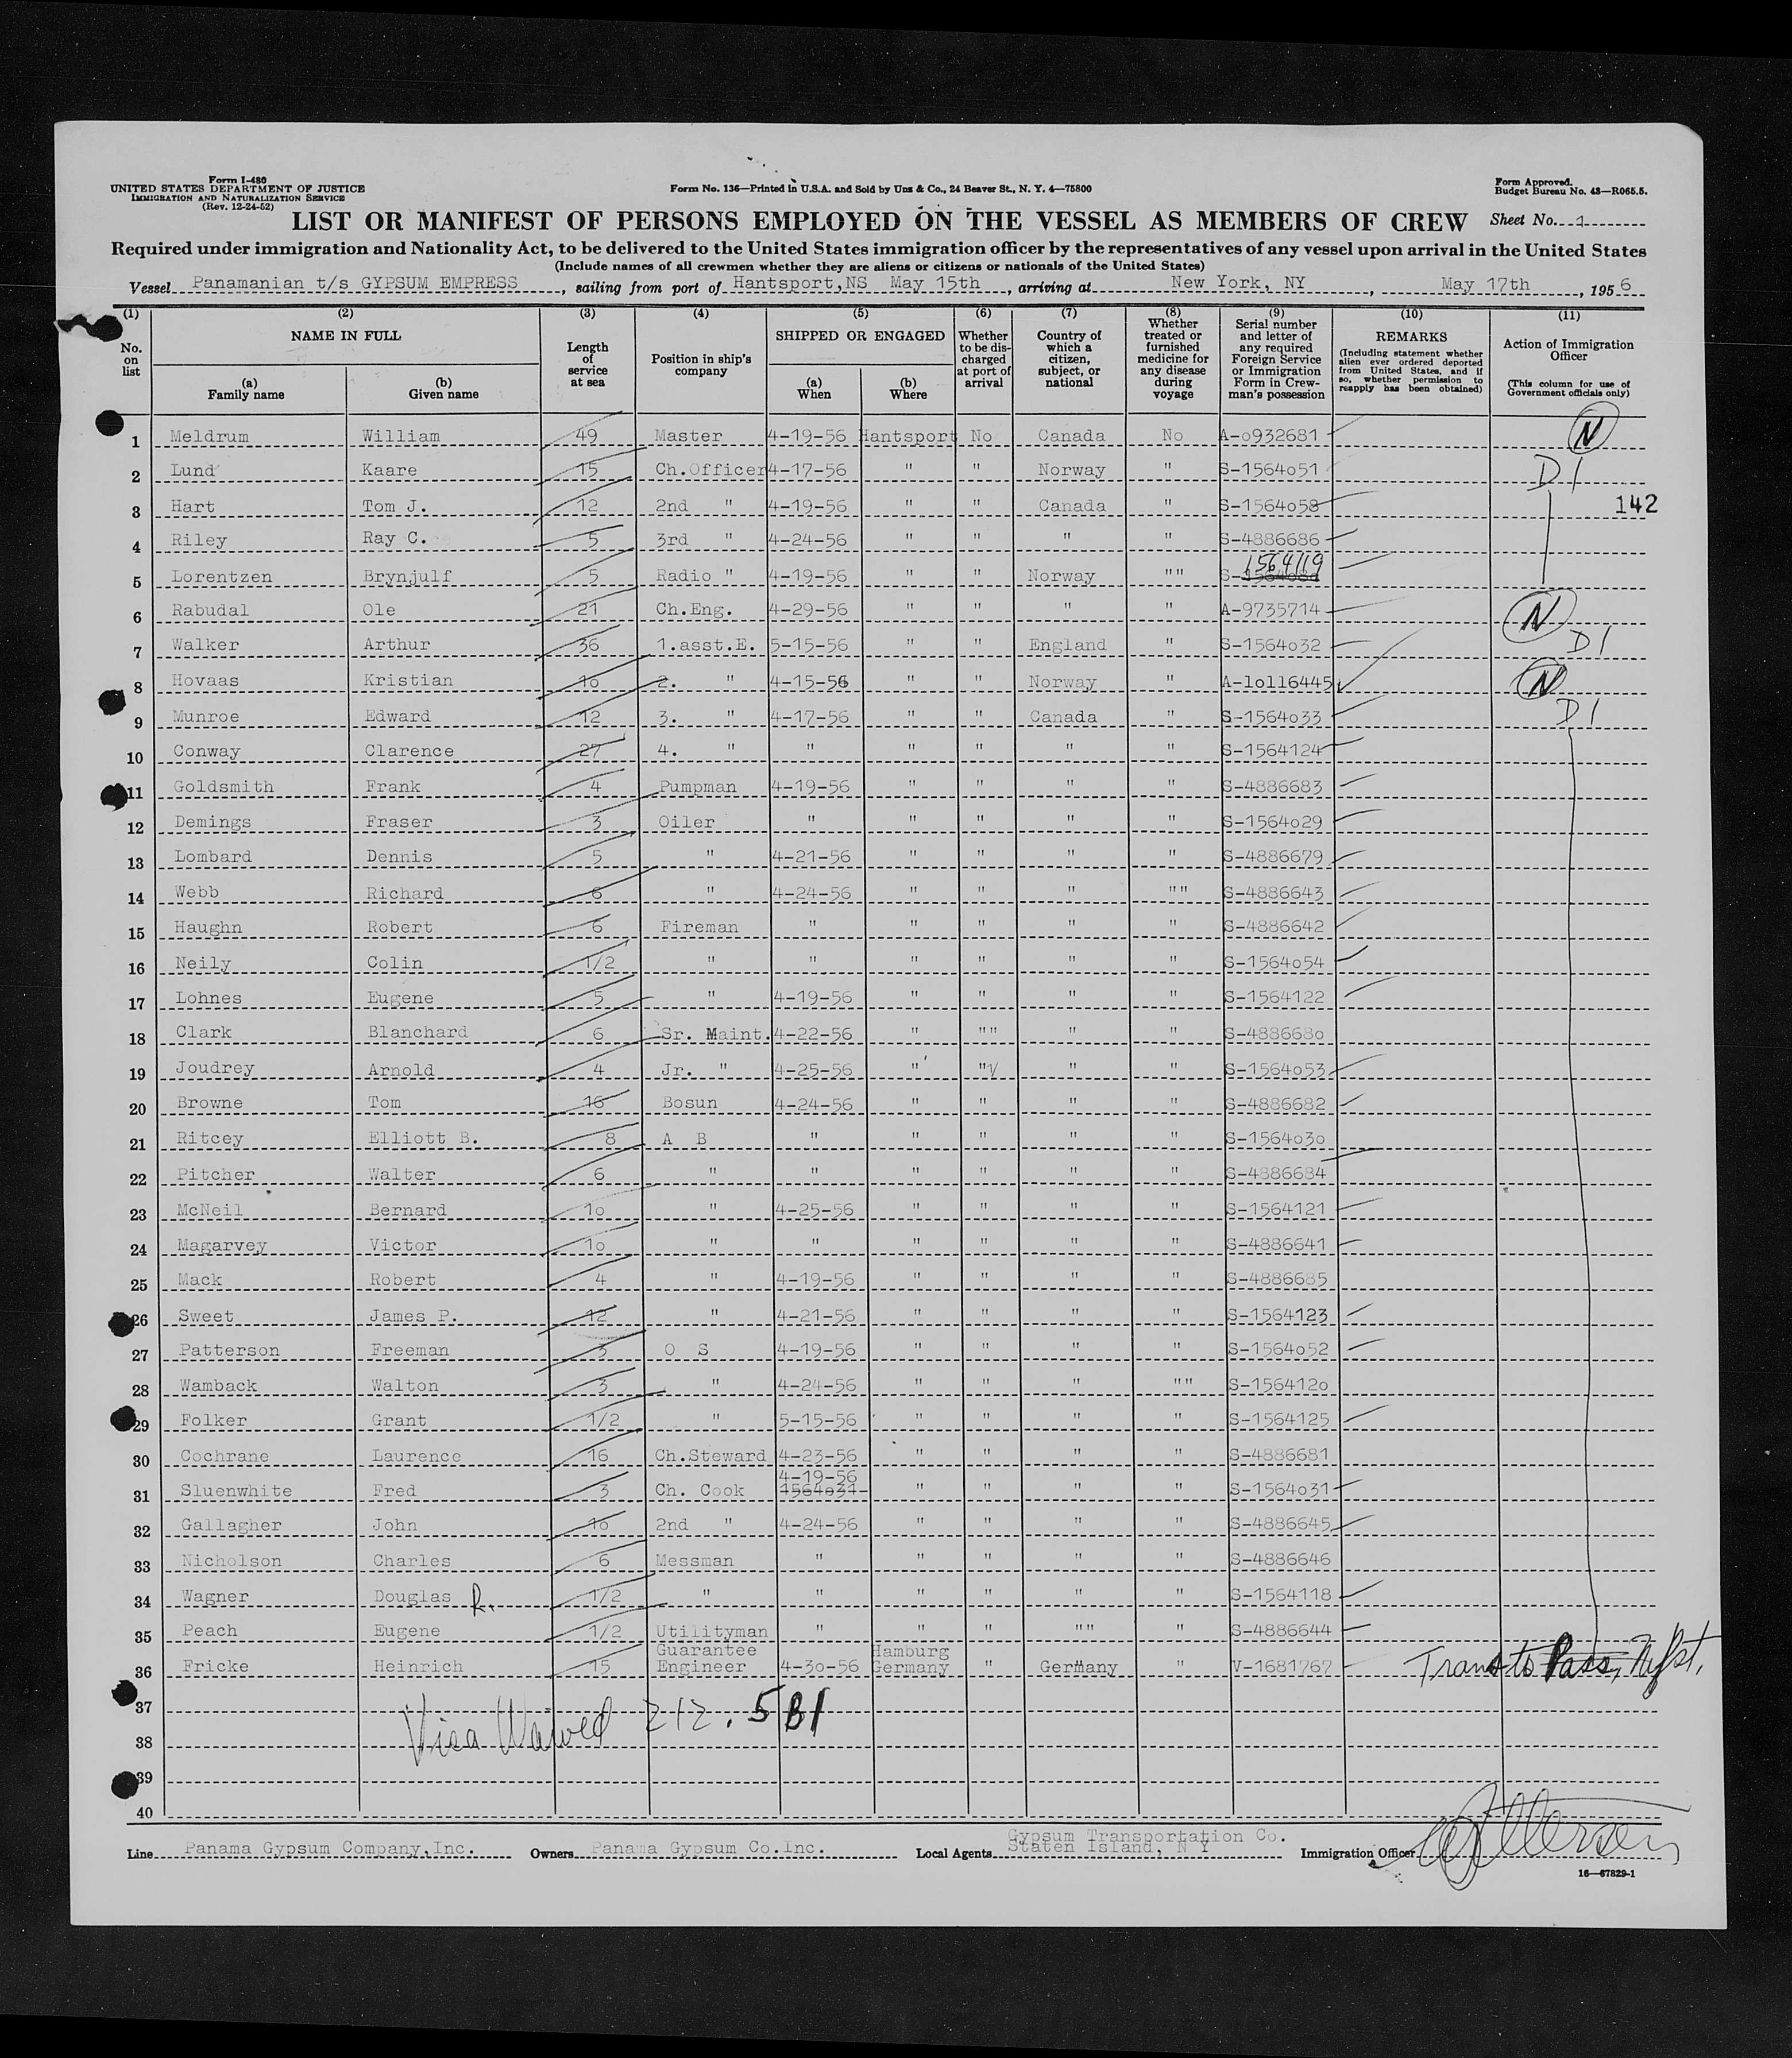 Form I-480
UNITED STATES DEPARTMENT OF JUSTICE
IMMIGRATION AND NATURALIZATION SERVICE
(Rev. 12-24-52)
Form No. 136—Printed in U.S.A. and Sold by Unz & Co., 24 Beaver St., N. Y. 4—75800
Form Approved.
Budget Bureau No. 43—R065.5.
LIST OR MANIFEST OF PERSONS EMPLOYED ON THE VESSEL AS MEMBERS OF CREW Sheet No. 1
Required under immigration and Nationality Act, to be delivered to the United States immigration officer by the representatives of any vessel upon arrival in the United States
(Include names of all crewmen whether they are aliens or citizens or nationals of the United States)
Vessel Panamanian t/s GYPSUM EMPRESS, sailing from port of Hantsport,NS May 15th, arriving at New York, NY, May 17th, 1956
(1) No. on list
(2) NAME IN FULL (a) Family name (b) Given name
(3) Length of service at sea
(4) Position in ship's company
(5) SHIPPED OR ENGAGED (a) When (b) Where
(6) Whether to be discharged at port of arrival
(7) Country of which a citizen, subject, or national
(8) Whether treated or furnished medicine for any disease during voyage
(9) Serial number and letter of any required Foreign Service or Immigration Form in Crewman's possession
(10) REMARKS (Including statement whether alien ever ordered deported from United States, and if so, whether permission to reapply has been obtained)
(11) Action of Immigration Officer (This column for use of Government officials only)
1 Meldrum William 49 Master 4-19-56 Hantsport No Canada No A-o932681 N
2 Lund Kaare 15 Ch.Officer 4-17-56 " " Norway " S-1564o51 D1
3 Hart Tom J. 12 2nd " 4-19-56 " " Canada " S-1564o58 142
4 Riley Ray C. 5 3rd " 4-24-56 " " " " S-4886686
5 Lorentzen Brynjulf 5 Radio " 4-19-56 " " Norway "" S-1564119
6 Rabudal Ole 21 Ch.Eng. 4-29-56 " " " " A-9735714 N
7 Walker Arthur 36 1.asst.E. 5-15-56 " " England " S-1564o32 D1
8 Hovaas Kristian 1o 2. " 4-15-56 " " Norway " A-1o116445 N
9 Munroe Edward 12 3. " 4-17-56 " " Canada " S-1564o33 D1
10 Conway Clarence 27 4. " " " " " " S-1564124
11 Goldsmith Frank 4 Pumpman 4-19-56 " " " " S-4886683
12 Demings Fraser 3 Oiler " " " " " S-1564o29
13 Lombard Dennis 5 " 4-21-56 " " " " S-4886679
14 Webb Richard 6 " 4-24-56 " " " "" S-4886643
15 Haughn Robert 6 Fireman " " " " " S-4886642
16 Neily Colin 1/2 " " " " " " S-1564o54
17 Lohnes Eugene 5 " 4-19-56 " " " " S-1564122
18 Clark Blanchard 6 Sr. Maint. 4-22-56 " "" " " S-488668o
19 Joudrey Arnold 4 Jr. " 4-25-56 " " " " S-1564o53
20 Browne Tom 16 Bosun 4-24-56 " " " " S-4886682
21 Ritcey Elliott B. 8 A B " " " " " S-1564o3o
22 Pitcher Walter 6 " " " " " " S-4886684
23 McNeil Bernard 1o " 4-25-56 " " " " S-1564121
24 Magarvey Victor 1o " " " " " " S-4886641
25 Mack Robert 4 " 4-19-56 " " " " S-4886685
26 Sweet James P. 12 " 4-21-56 " " " " S-1564123
27 Patterson Freeman 3 O S 4-19-56 " " " " S-1564o52
28 Wamback Walton 3 " 4-24-56 " " " "" S-156412o
29 Folker Grant 1/2 " 5-15-56 " " " " S-1564125
30 Cochrane Laurence 16 Ch.Steward 4-23-56 " " " " S-4886681
4-19-56
31 Sluenwhite Fred 3 Ch. Cook 1564o31- " " " " S-1564o31
32 Gallagher John 1o 2nd " 4-24-56 " " " " S-4886645
33 Nicholson Charles 6 Messman " " " " " S-4886646
34 Wagner Douglas R. 1/2 " " " " " " S-1564118
35 Peach Eugene 1/2 Utilityman " " " "" S-4886644
36 Fricke Heinrich 15 Guarantee Engineer 4-30-56 Hamburg Germany " Germany " V-1681767 Trans to Pass,
37
38 Visa Waived 212.5 B1
39
40
Line Panama Gypsum Company,Inc. Owners Panama Gypsum Co.Inc. Local Agents Gypsum Transportation Co. Staten Island, N Y Immigration Officer
16—67829-1